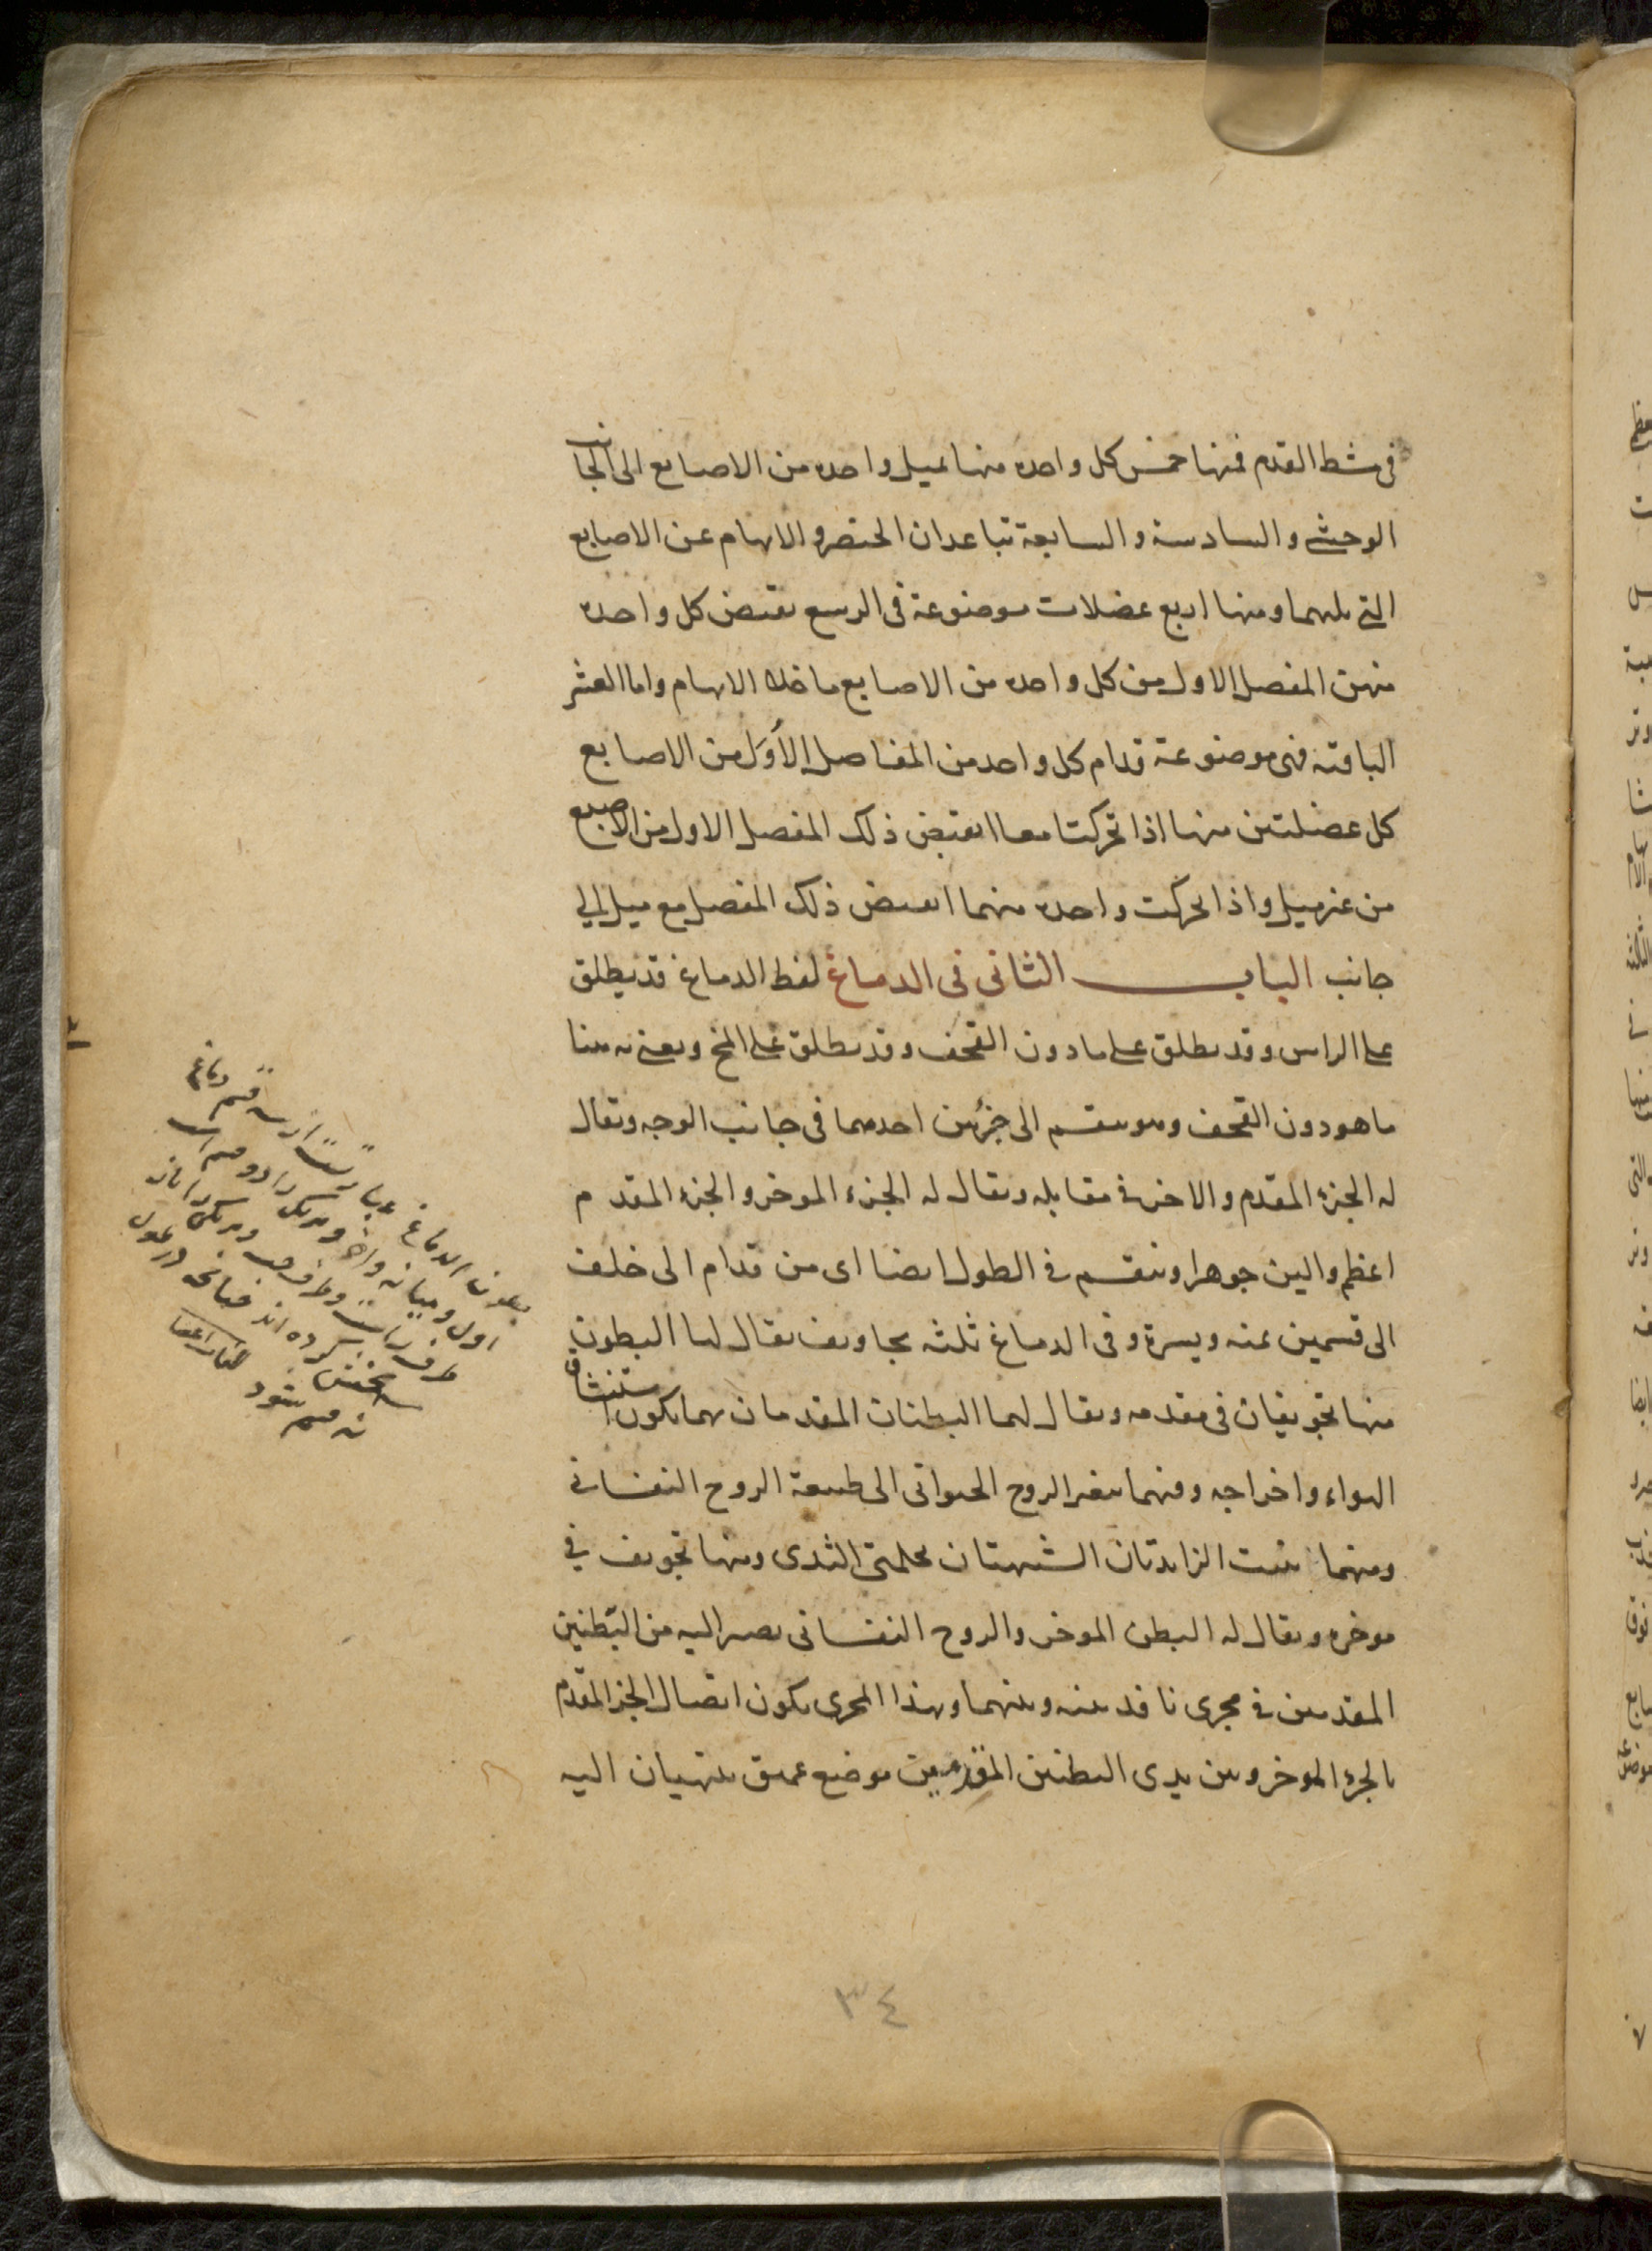 في مشط القدم فمنها خمس كل واحدة منها تميل واحدة من الاصابع الى الجانب
الوحشي والسادسة والسابعة تباعدان الخنصر والابهام عن الاصابع
التي تليهما ومنها اربع عضلات موضوعة في الرسغ تقبض كل واحدة
منهن المفصل الاول من كل واحدة من الاصابع ما خلا الابهام واما العشر
الباقية فهي موضوعة قدام كل واحد من المفاصل الأوَل من الاصابع
كل عضلتين منها اذا تحركتا معا انقبض ذلك المفصل الاول من الاصبع
من غير ميل واذا تحركت واحدة منهما انقبض ذلك المفصل مع ميل الى
جانب الباب الثاني في الدماغ لفظ الدماغ قد يطلق
على الراس وقد يطلق على ما دون القحف وقد يطلق على المخ ويعني به هنا
ما هو دون القحف وهو ينقسم الى جزئين احدهما في جانب الوجه ويقال
له الجزء المقدم والاخر في مقابله ويقال له الجزء الموخر والجزء المقدم
اعظم والين جوهرا وينقسم في الطول ايضا اى من قدام الى خلف
الى قسمين يمنه ويسرة وفى الدماغ ثلثه تجاويف يقال لها البطون
منها تجويفان في مقدمه ويقال لهما البطنان المقدمان بهما يكون استنشاق
الهواء واخراجه وفيهما يتغير الروح الحيوانى الى طبيعة الروح النفساني
ومنهما ينبت الزايدتان الشبيهتان بحلمتى الثدى ومنها تجويف في
موخره ويقال له البطن الموخر والروح النفسانى يصير اليه من البطنين
المقدمين في مجرى نافذ بينه وبينهما وبهذا المجرى يكون اتصال الجزء المقدم
بالجزء الموخر وبين يدى البطنين المقدمين موضع عميق ينتهيان اليه
بطون الدماغ عبارتست از سه قسم دماغ
اول وميانه واخر وهر يك را دو قسم است
طرف راست وطرف چپ وهر يك را باز
سه بخش كرده اند چنانچه در طول
نه قسم شود
٣٤